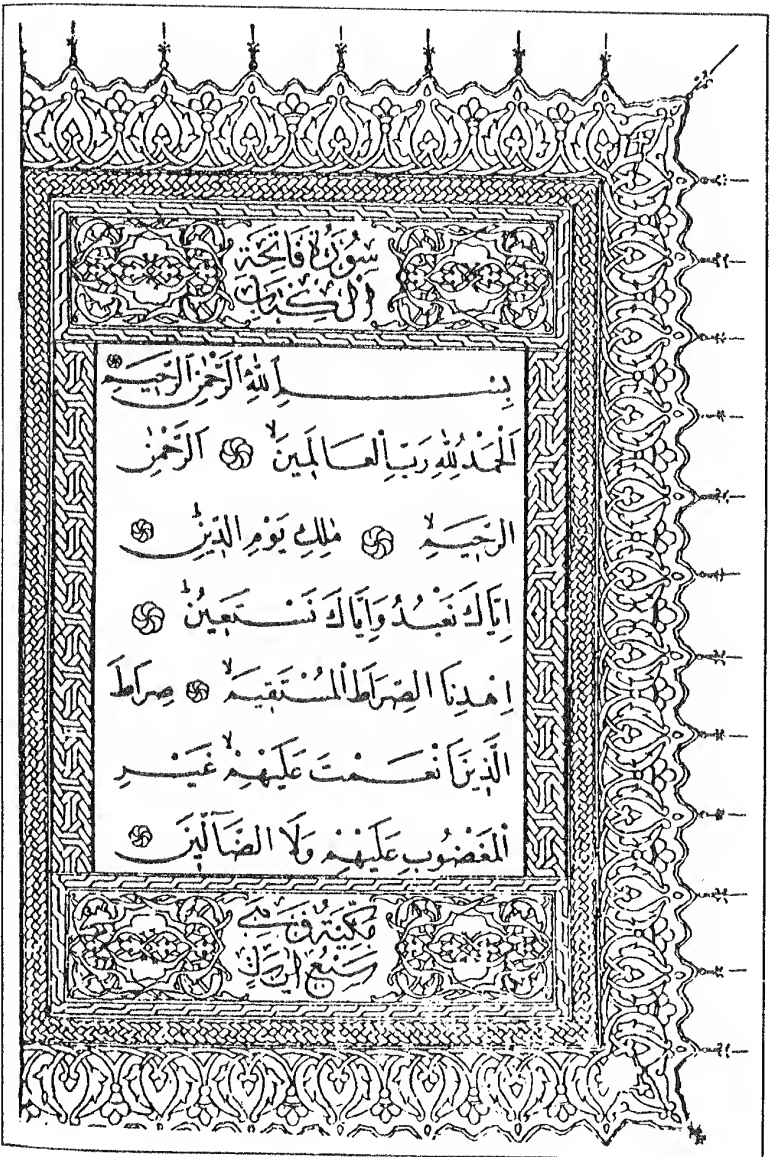 سُورَةُ فَاتِحَةِ
الْكِتَابِ
بِسْمِ اللّٰهِ الرَّحْمٰنِ الرَّحِيمِ
اَلْحَمْدُ لِلّٰهِ رَبِّ الْعَالَمِينَ ۙ اَلرَّحْمٰنِ
الرَّحِيمِ ۙ مٰلِكِ يَوْمِ الدِّينِ ۜ
اِيَّاكَ نَعْبُدُ وَاِيَّاكَ نَسْتَعِينُ ۜ
اِهْدِنَا الصِّرَاطَ الْمُسْتَقِيمَ ۙ صِرَاطَ
الَّذِينَ اَنْعَمْتَ عَلَيْهِمْ ۙ غَيْرِ
الْمَغْضُوبِ عَلَيْهِمْ وَلَا الضَّٓالِّينَ
مَكِّيَّةٌ وَهِيَ
سَبْعُ اٰيَاتٍ